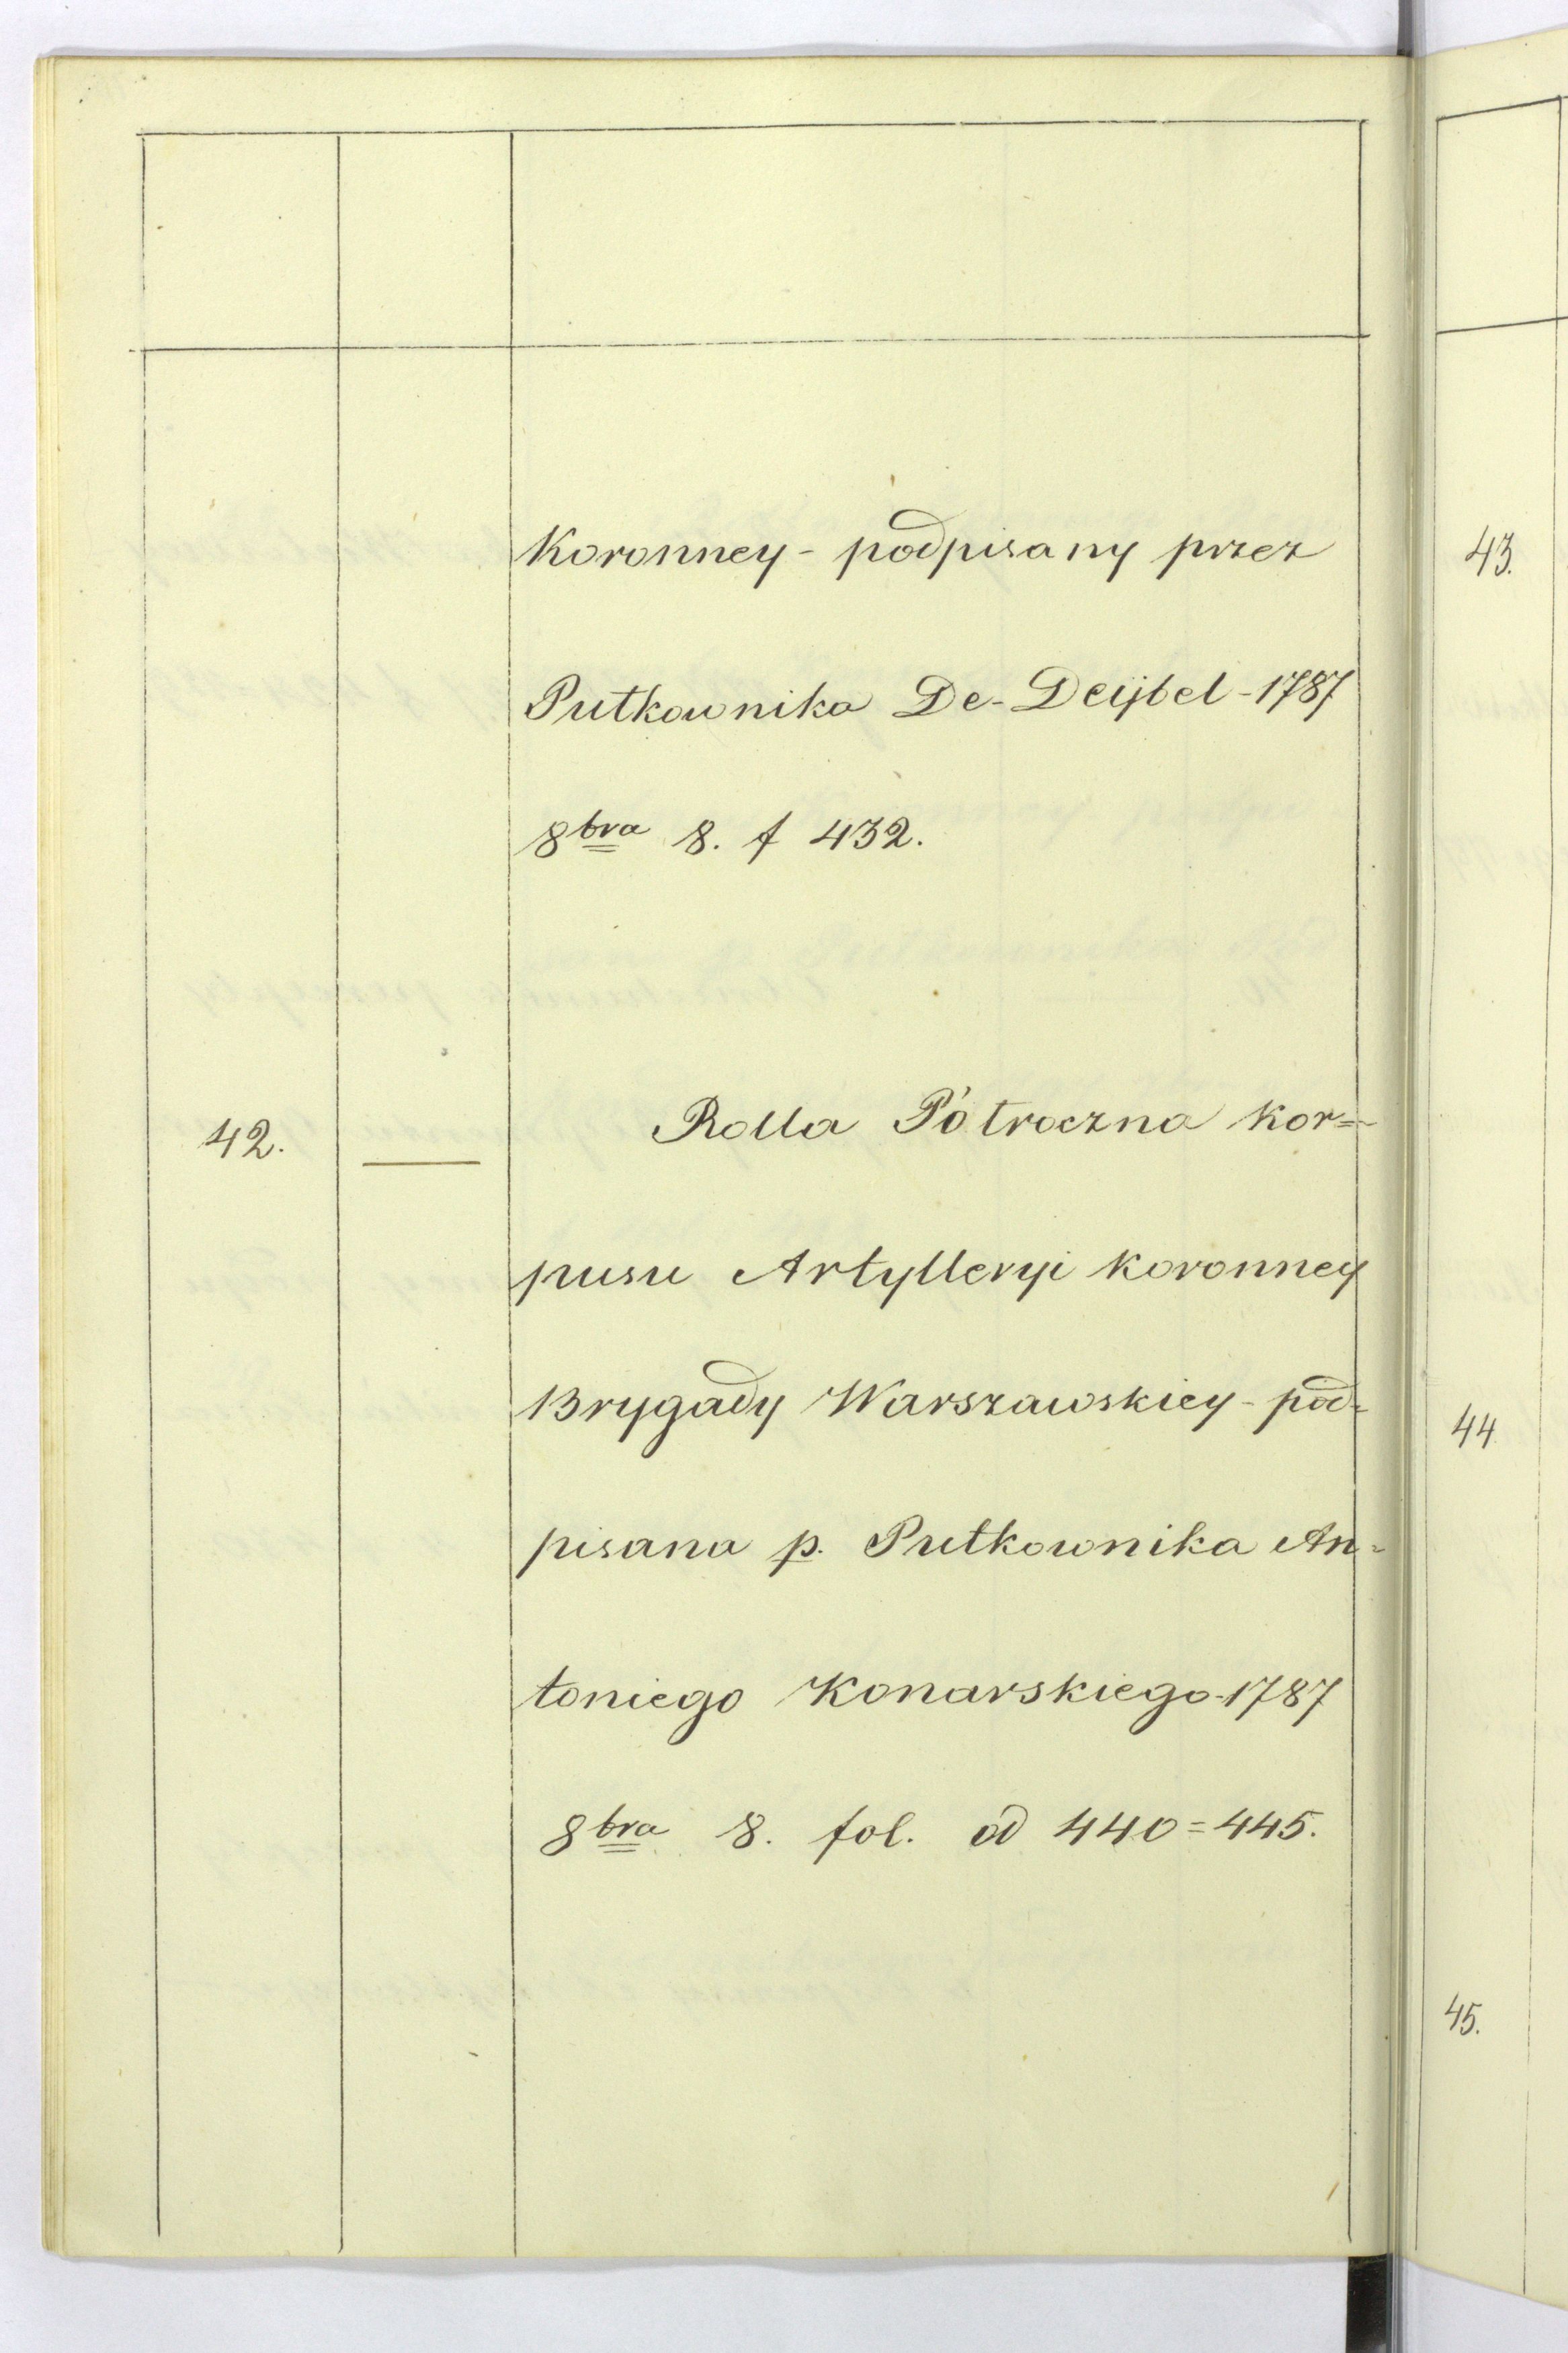 Koronney - podpisany przez
Pułkownika De-Deijbel - 1787
8bra 8. f 432.
42. — Rolla Półroczna Kor=
pusu Artylleryi Koronney
Brygady Warszawskiey - pod=
pisana p. Pułkownika An=
toniego Konarskiego - 1787
8bra 8. fol. od 440=445.
43.
44
45.